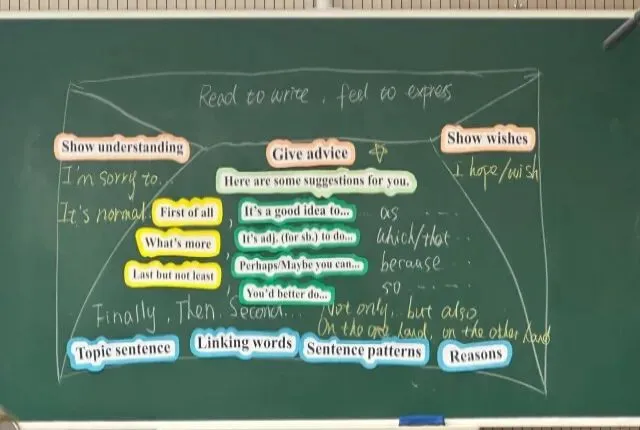 Read to write, feel to express
Show understanding
Give advice
Show wishes
I'm sorry to..
I hope/wish
Here are some suggestions for you.
It's normal
First of all
, It's a good idea to...
as ....
What's more
It's adj. (for sb.) to do...
which/that ..
Last but not least
, Perhaps/Maybe you can...
because ....
, You'd better do...
so ....
Finally, Then, Second...
Not only.. but also
On the one hand, on the other hand
Topic sentence
Linking words
Sentence patterns
Reasons